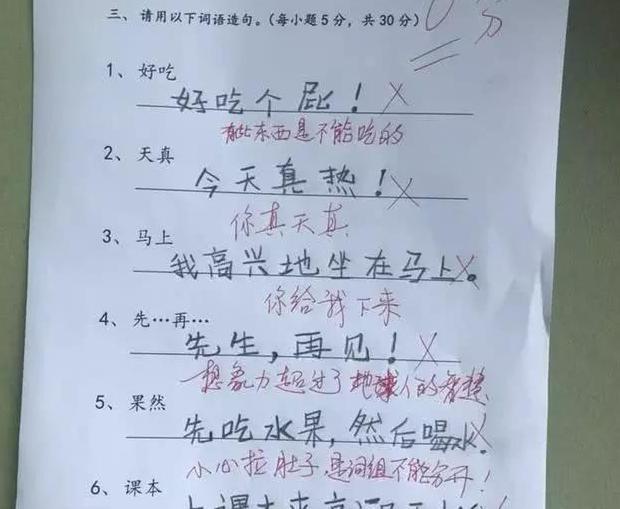 三、请用以下词语造句。（每小题5分，共30分）
0分
1、好吃
好吃个屁！
有些东西是不能吃的
2、天真
今天真热！
你真天真
3、马上
我高兴地坐在马上。
你给我下来
4、先…再…
先生，再见！
想象力超过了地球人的
5、果然
先吃水果，然后喝水。
小心拉肚子，是词组不能分开！
6、课本
上课本来